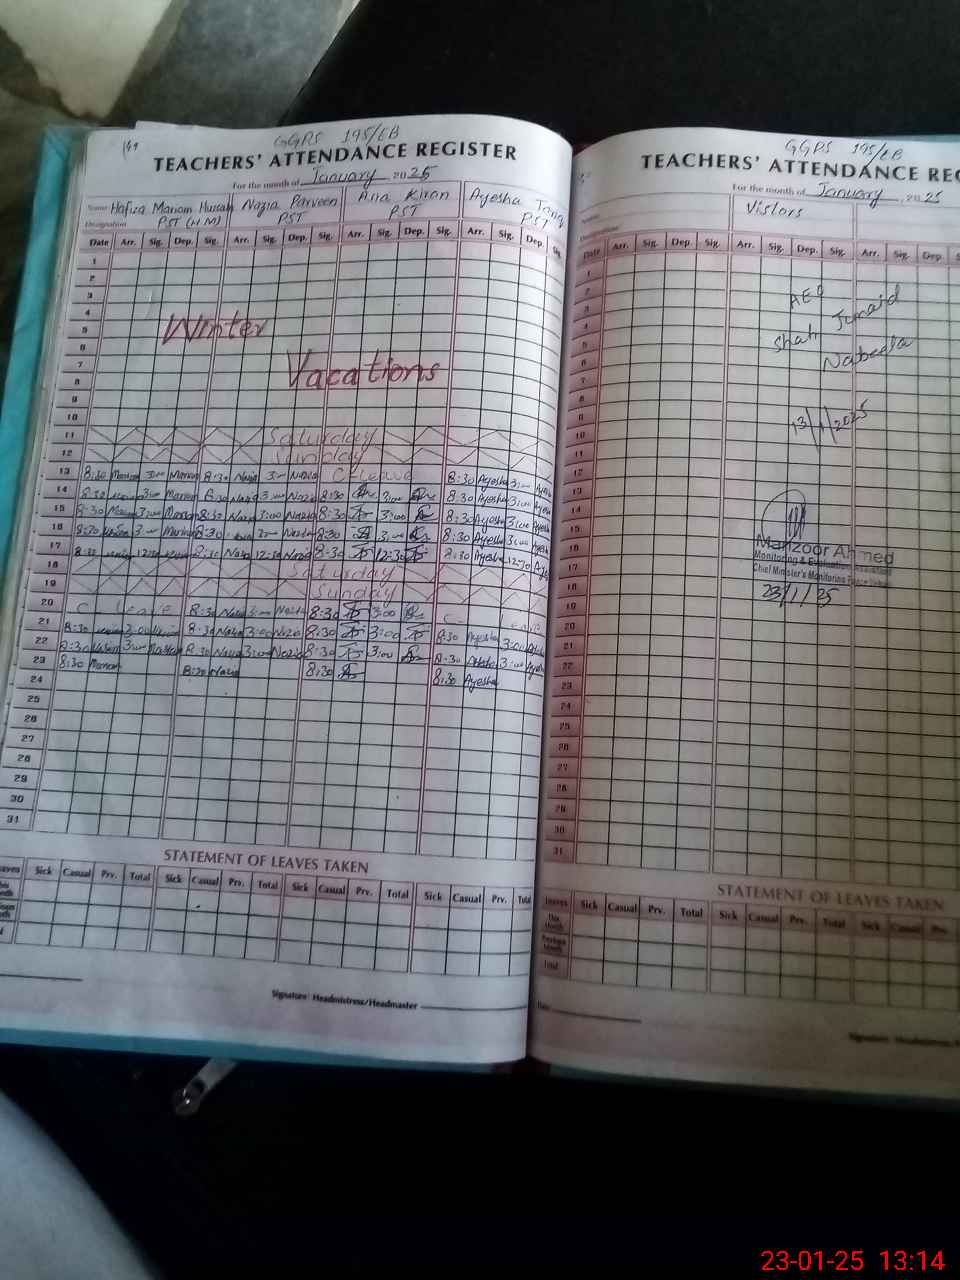 GGPS 195/EB
TEACHERS' ATTENDANCE REGISTER
For the month of January 2025
Name Hafiza Mariam Hussain Nazia Parveen Ana Kiran Ayesha Tariq
Designation PST (H.M) PST PST PST
Date Arr. Sig. Dep. Sig. Arr. Sig. Dep. Sig. Arr. Sig. Dep. Sig. Arr. Sig. Dep. Sig.
1
2
3
4
5 Winter
6
7 Vacations
8
9
10
11 Saturday
12 Sunday
13 8:30 Mariam 3:00 Mariam 8:30 Nazia 3:00 Nazia C-Leave 8:30 Ayesha 3:00 Ayesha
14 8:30 3:00 Mariam 8:30 Nazia 3:00 Nazia 8:30 3:00 8:30 Ayesha 3:00 Ayesha
15 8:30 3:00 Mariam 8:30 Nazia 3:00 Nazia 8:30 3:00 8:30 Ayesha 3:00 Ayesha
16 8:30 3:00 Mariam 8:30 3:00 Nazia 8:30 3:00 8:30 Ayesha 3:00 Ayesha
17 8:30 12:30 8:30 Nazia 12:30 Nazia 8:30 12:30 8:30 Ayesha 12:30 Ayesha
18 Saturday
19 Sunday
20 C Leave 8:30 Nazia 3:00 Nazia 8:30 3:00 C. Leave
21 8:30 3:00 8:30 Nazia 3:00 Nazia 8:30 3:00 8:30 Ayesha 3:00
22 8:30 3:00 8:30 Nazia 3:00 Nazia 8:30 3:00 8:30 3:00 Ayesha
23 8:30 Mariam 8:30 Nazia 8:30 8:30 Ayesha
24
25
26
27
28
29
30
31
STATEMENT OF LEAVES TAKEN
Leaves Sick Casual Prv. Total Sick Casual Prv. Total Sick Casual Prv. Total Sick Casual Prv. Total
Signature: Headmistress/Headmaster
GGPS 195/EB
TEACHERS' ATTENDANCE REG
For the month of January 2025
Name: Visitors
Designation:
Date Arr. Sig. Dep. Sig. Arr. Sig. Dep. Sig. Arr. Sig. Dep. S
1
2
3
4
5
6
7
8
9
10
11
12
13
14
15
16
17
18
19
20
21
22
23
24
25
26
27
28
29
30
31
AEO
Shah Junaid
Nabeela
13/1/2025
Manzoor Ahmed
Monitoring & Evaluation Assistant
Chief Minister's Monitoring Force
23/1/25
STATEMENT OF LEAVES TAKEN
Leaves Sick Casual Prv. Total Sick Casual Prv. Total Sick Casual Prv.
This Month
Previous Month
Total
Date
Signature: Headmistress
23-01-25 13:14